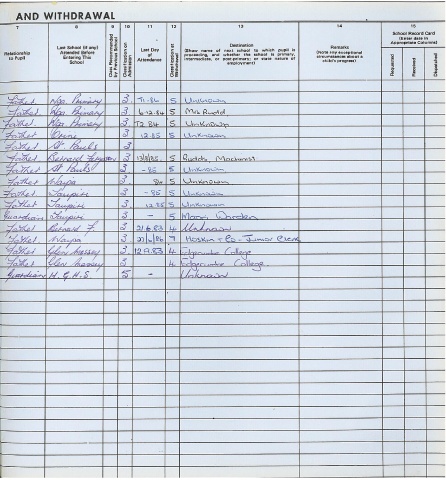 AND WITHDRAWAL
7 8 9 10 11 12 13 14 15
Relationship to Pupil
Last School (if any) Attended Before Entering This School
Class Recommended by Previous School
Classification on Admission
Last Day of Attendance
Classification at Withdrawal
Destination
(Show name of next school to which pupil is proceeding, and whether the school is primary, intermediate, or post-primary; or state nature of employment)
Remarks
(Note any exceptional circumstances about a child's progress)
School Record Card (Enter date in Appropriate Columns)
Requested
Received
Despatched
Father Nga. Primary 3 5 Unknown
Father Nga. Primary 3 6-12-84 5
Father Nga Primary 3 T2 84 5 Unknown
Father 3 12.85 5 Unknown
Father St Paul's 3
Father Bernard 3 5 Machinist
Father St Pauls 3 -85 5 Unknown
Father Waipa 3 84 5 Unknown
Father Taupiri 3 -85 5 Unknown
Father Taupiri 3 12.85 5 Unknown
Guardian Taupiri 3 - 5 Maori Warden
Father Bernard F. 3 2/6.83 4 Unknown
Father Waipa 3 Junior Clerk
Father Glen Massey 3 12.9.83 4 College
Father Glen Massey 3 4 College
Guardian H.G.H.S 5 - Unknown